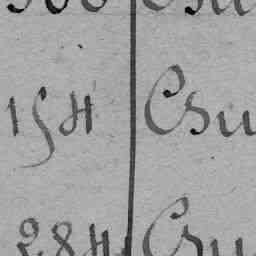 154 Csu
284 Csu